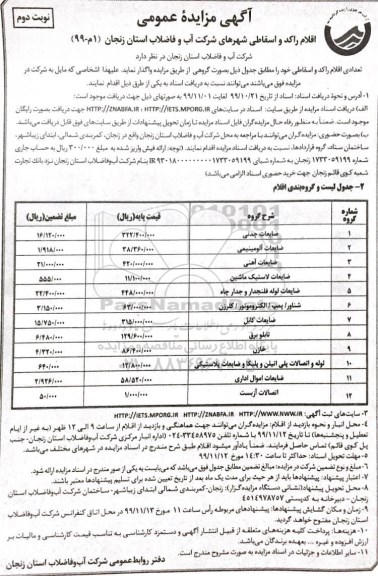 نوبت دوم
آگهی مزایده عمومی
اقلام راکد و اسقاطی شهرهای شرکت آب و فاضلاب استان زنجان (۱م-۹۹)
شرکت آب و فاضلاب استان زنجان در نظر دارد
تعدادی اقلام راکد و اسقاطی خود را مطابق جدول ذیل بصورت گروهی از طریق مزایده واگذار نماید. علیهذا اشخاصی که مایل به شرکت در
مزایده فوق می‌باشند می‌توانند نسبت به دریافت اسناد به یکی از طرق ذیل اقدام نمایند.
۱- آدرس و نحوه دریافت اسناد: اسناد از تاریخ ۹۹/۱۰/۲۱ لغایت ۹۹/۱۱/۰۱ به صورتهای ذیل جهت دریافت موجود است:
الف) دریافت اسناد مزایده از طریق سایت: اسناد در سایت‌های HTTP://IETS.MPORG.IR و HTTP://ZNABFA.IR جهت دریافت بصورت رایگان
موجود است. ضمناً به منظور رفاه حال مزایده‌گران فایل اسناد مزایده تا زمان تحویل پیشنهادات از طریق سایت‌های فوق قابل دریافت می‌باشد.
ب) بصورت حضوری: مزایده‌گران می‌توانند با مراجعه به محل شرکت آب و فاضلاب استان زنجان واقع در زنجان، کمربندی شمالی، ابتدای زیباشهر،
ساختمان ستاد، گروه قراردادها، نسبت به دریافت اسناد مزایده اقدام نمایند. (توجه: ارائه فیش واریز شده به مبلغ ۳۰۰/۰۰۰ ریال به حساب جاری
شعبه کوی قائم زنجان جهت خرید حضوری اسناد الزامی می‌باشد)
۲- جدول لیست و گروه‌بندی اقلام
شماره گروه | شرح گروه | قیمت پایه(ریال) | مبلغ تضمین(ریال)
۱ | ضایعات چدنی | ۳۲۲/۴۰۰/۰۰۰ | ۱۶/۱۲۰/۰۰۰
۲ | ضایعات آلومینیومی | ۳۸/۳۶۰/۰۰۰ | ۱/۹۱۸/۰۰۰
۳ | ضایعات آهنی | ۴۲۰/۰۰۰/۰۰۰ | ۲۱/۰۰۰/۰۰۰
۴ | ضایعات لاستیک ماشین | ۱۱/۱۰۰/۰۰۰ | ۵۵۵/۰۰۰
۵ | ضایعات لوله فلنجدار و جدار چاه | ۴۴۸/۰۰۰/۰۰۰ | ۲۲/۴۰۰/۰۰۰
۶ | شناور/ پمپ / الکتروموتور / کلرزن | ۶۳/۰۰۰/۰۰۰ | ۳/۱۵۰/۰۰۰
۷ | ضایعات کابل | ۳۱۵/۰۰۰/۰۰۰ | ۱۵/۷۵۰/۰۰۰
۸ | تابلو برق | ۱۲۹/۶۰۰/۰۰۰ | ۶/۴۸۰/۰۰۰
۹ | خازن | ۸۶/۴۰۰/۰۰۰ | ۴/۳۲۰/۰۰۰
۱۰ | لوله و اتصالات پلی اتیلن و پلیکا و ضایعات پلاستیکی | ۱۲/۸۰۰/۰۰۰ | ۶۴۰/۰۰۰
۱۱ | ضایعات اموال اداری | ۵۸/۵۲۰/۰۰۰ | ۲/۹۲۶/۰۰۰
۱۲ | اتصالات آزبست | ۱/۰۰۰/۰۰۰ | ۵۰/۰۰۰
۳- سایت‌های ثبت آگهی: HTTP://IETS.MPORG.IR HTTP://ZNABFA.IR HTTP://WWW.NWW.IR
۴- محل انبار و نحوه بازدید از اقلام: مزایده‌گران می‌توانند جهت هماهنگی و بازدید از اقلام از ساعت ۹ الی ۱۲ ظهر (به غیر از ایام
تعطیل و پنجشنبه‌ها) تا تاریخ ۹۹/۱۱/۱۲ با شماره تلفن ۳۳۴۵۸۹۷۵-۰۲۴ (اداره انبار مرکزی شرکت آب‌وفاضلاب استان زنجان- جنب
پل کوی قائم) تماس حاصل فرمایند. ضمناً یادآور میشود اقلام طبق شرح مندرج در اسناد مزایده در شهرهای مختلف می‌باشد.
۵- مهلت تحویل اسناد: حداکثر تا ساعت ۱۴:۳۰ مورخ ۹۹/۱۱/۱۲
۶- مبلغ و نوع تضمین شرکت در مزایده: مبالغ تضمین مطابق جدول فوق می‌باشد که می‌بایست به یکی از صور مندرج در اسناد مزایده ارائه شود.
۷- اعتبار پیشنهاد: پیشنهادها باید از هر حیث برای مدت یک ماه بعد از تاریخ تعیین شده برای تسلیم پیشنهادها معتبر باشند.
۸- محل تحویل پیشنهادها(نشانی دستگاه مزایده‌گزار): زنجان-کمربندی شمالی ابتدای زیباشهر- ساختمان شرکت آب‌وفاضلاب استان
زنجان - دبیرخانه به کدپستی ۴۵۱۴۹۷۸۷۵۷
۹- زمان و مکان گشایش پیشنهادها: پیشنهادهای مربوطه رأس ساعت ۱۱ مورخ ۹۹/۱۱/۱۳ در محل اتاق کنفرانس شرکت آب‌وفاضلاب
استان زنجان مفتوح خواهد گردید.
۱۰- هزینه‌ها: پرداخت کلیه هزینه‌های متعلقه از قبیل انتشار آگهی و دستمزد کارشناسی به تناسب قیمت کارشناسی و مالیات بر
ارزش افزوده و غیره ... بعهده برندگان می‌باشد.
۱۱- سایر اطلاعات و جزئیات در اسناد مزایده به صورت مشروح مندرج است.
دفتر روابط عمومی شرکت آب‌وفاضلاب استان زنجان